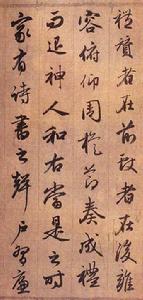 禮賛者在前者在後雝
容俯仰周旋節奏成禮
而退神人和右當是之時
家有詩書之聲戶習廉